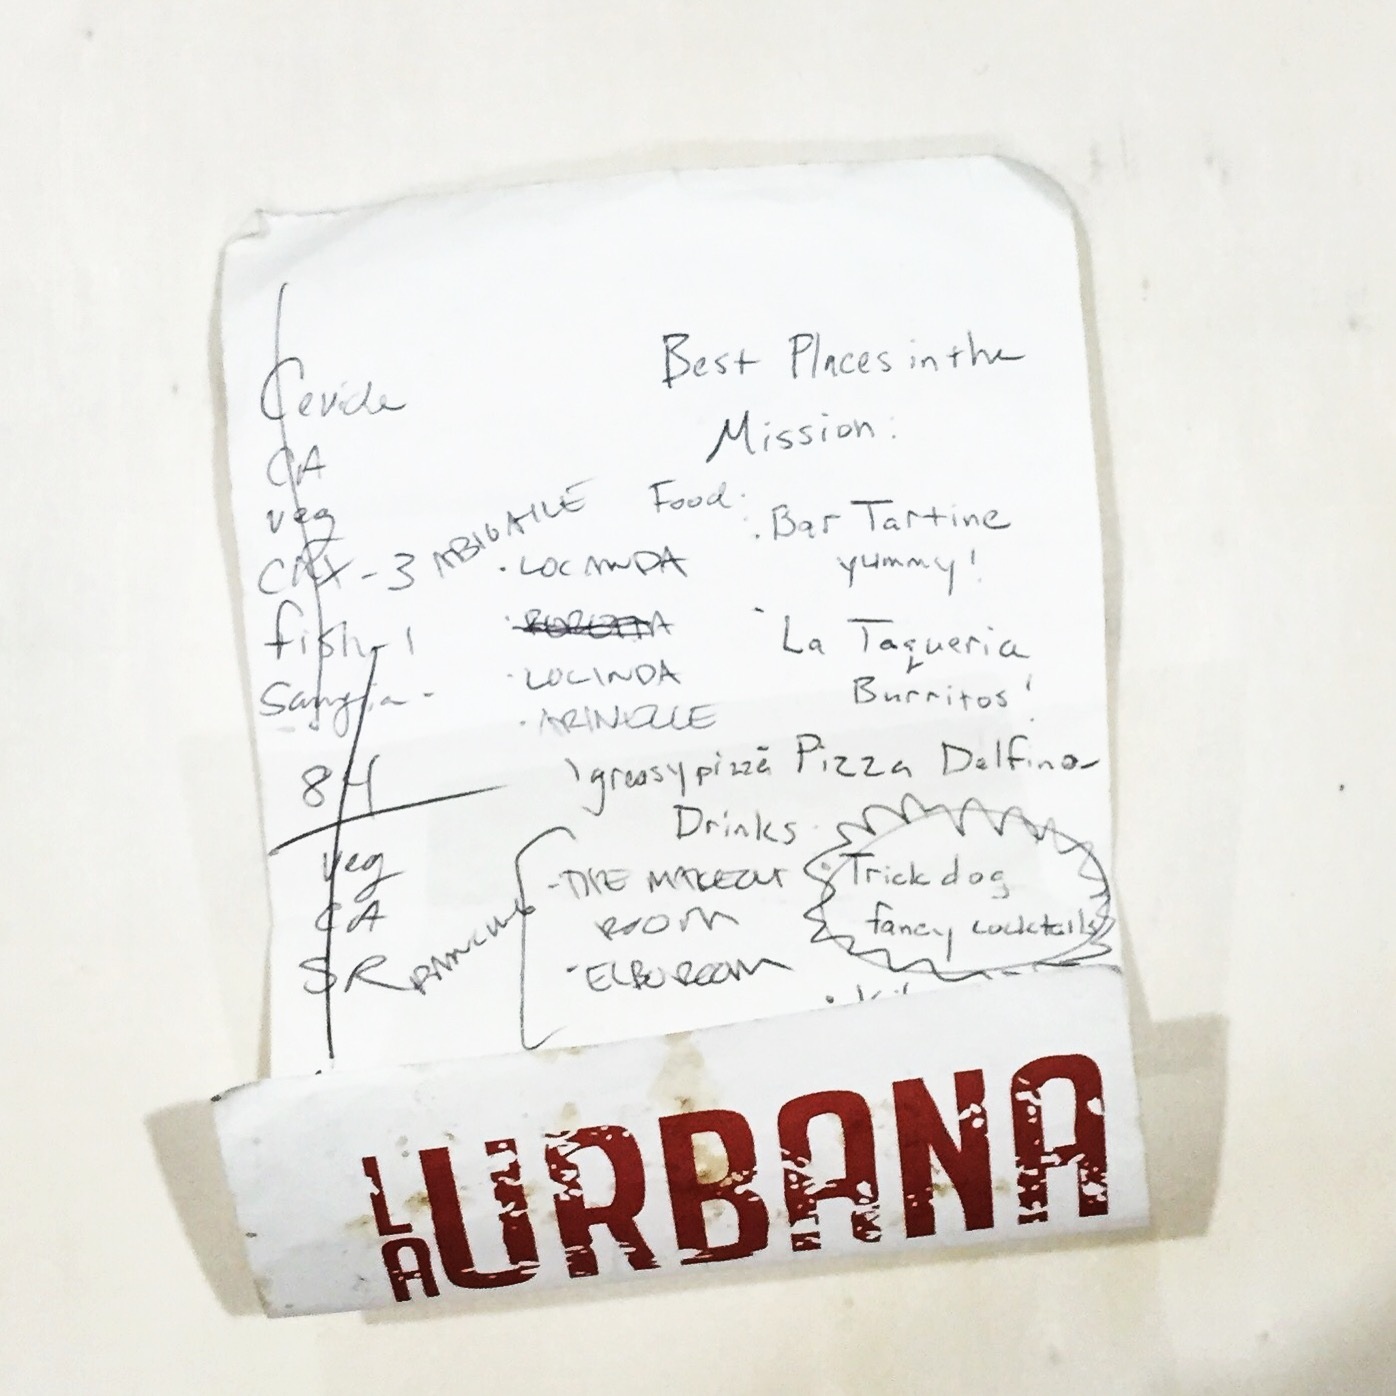 Best Places in the
Mission:
Cevich
CA
veg
-3
fish-1
Sangria-
84
veg
CA
SR
Food:
Bar Tartine
yummy!
LOCANDA
La Taqueria
Burritos!
LOCINDA
greasy pizza Pizza Delfina
Drinks
-THE MAKEOUT
ROOM
-ELBO ROOM
Trick dog
fancy cocktails
LA URBANA